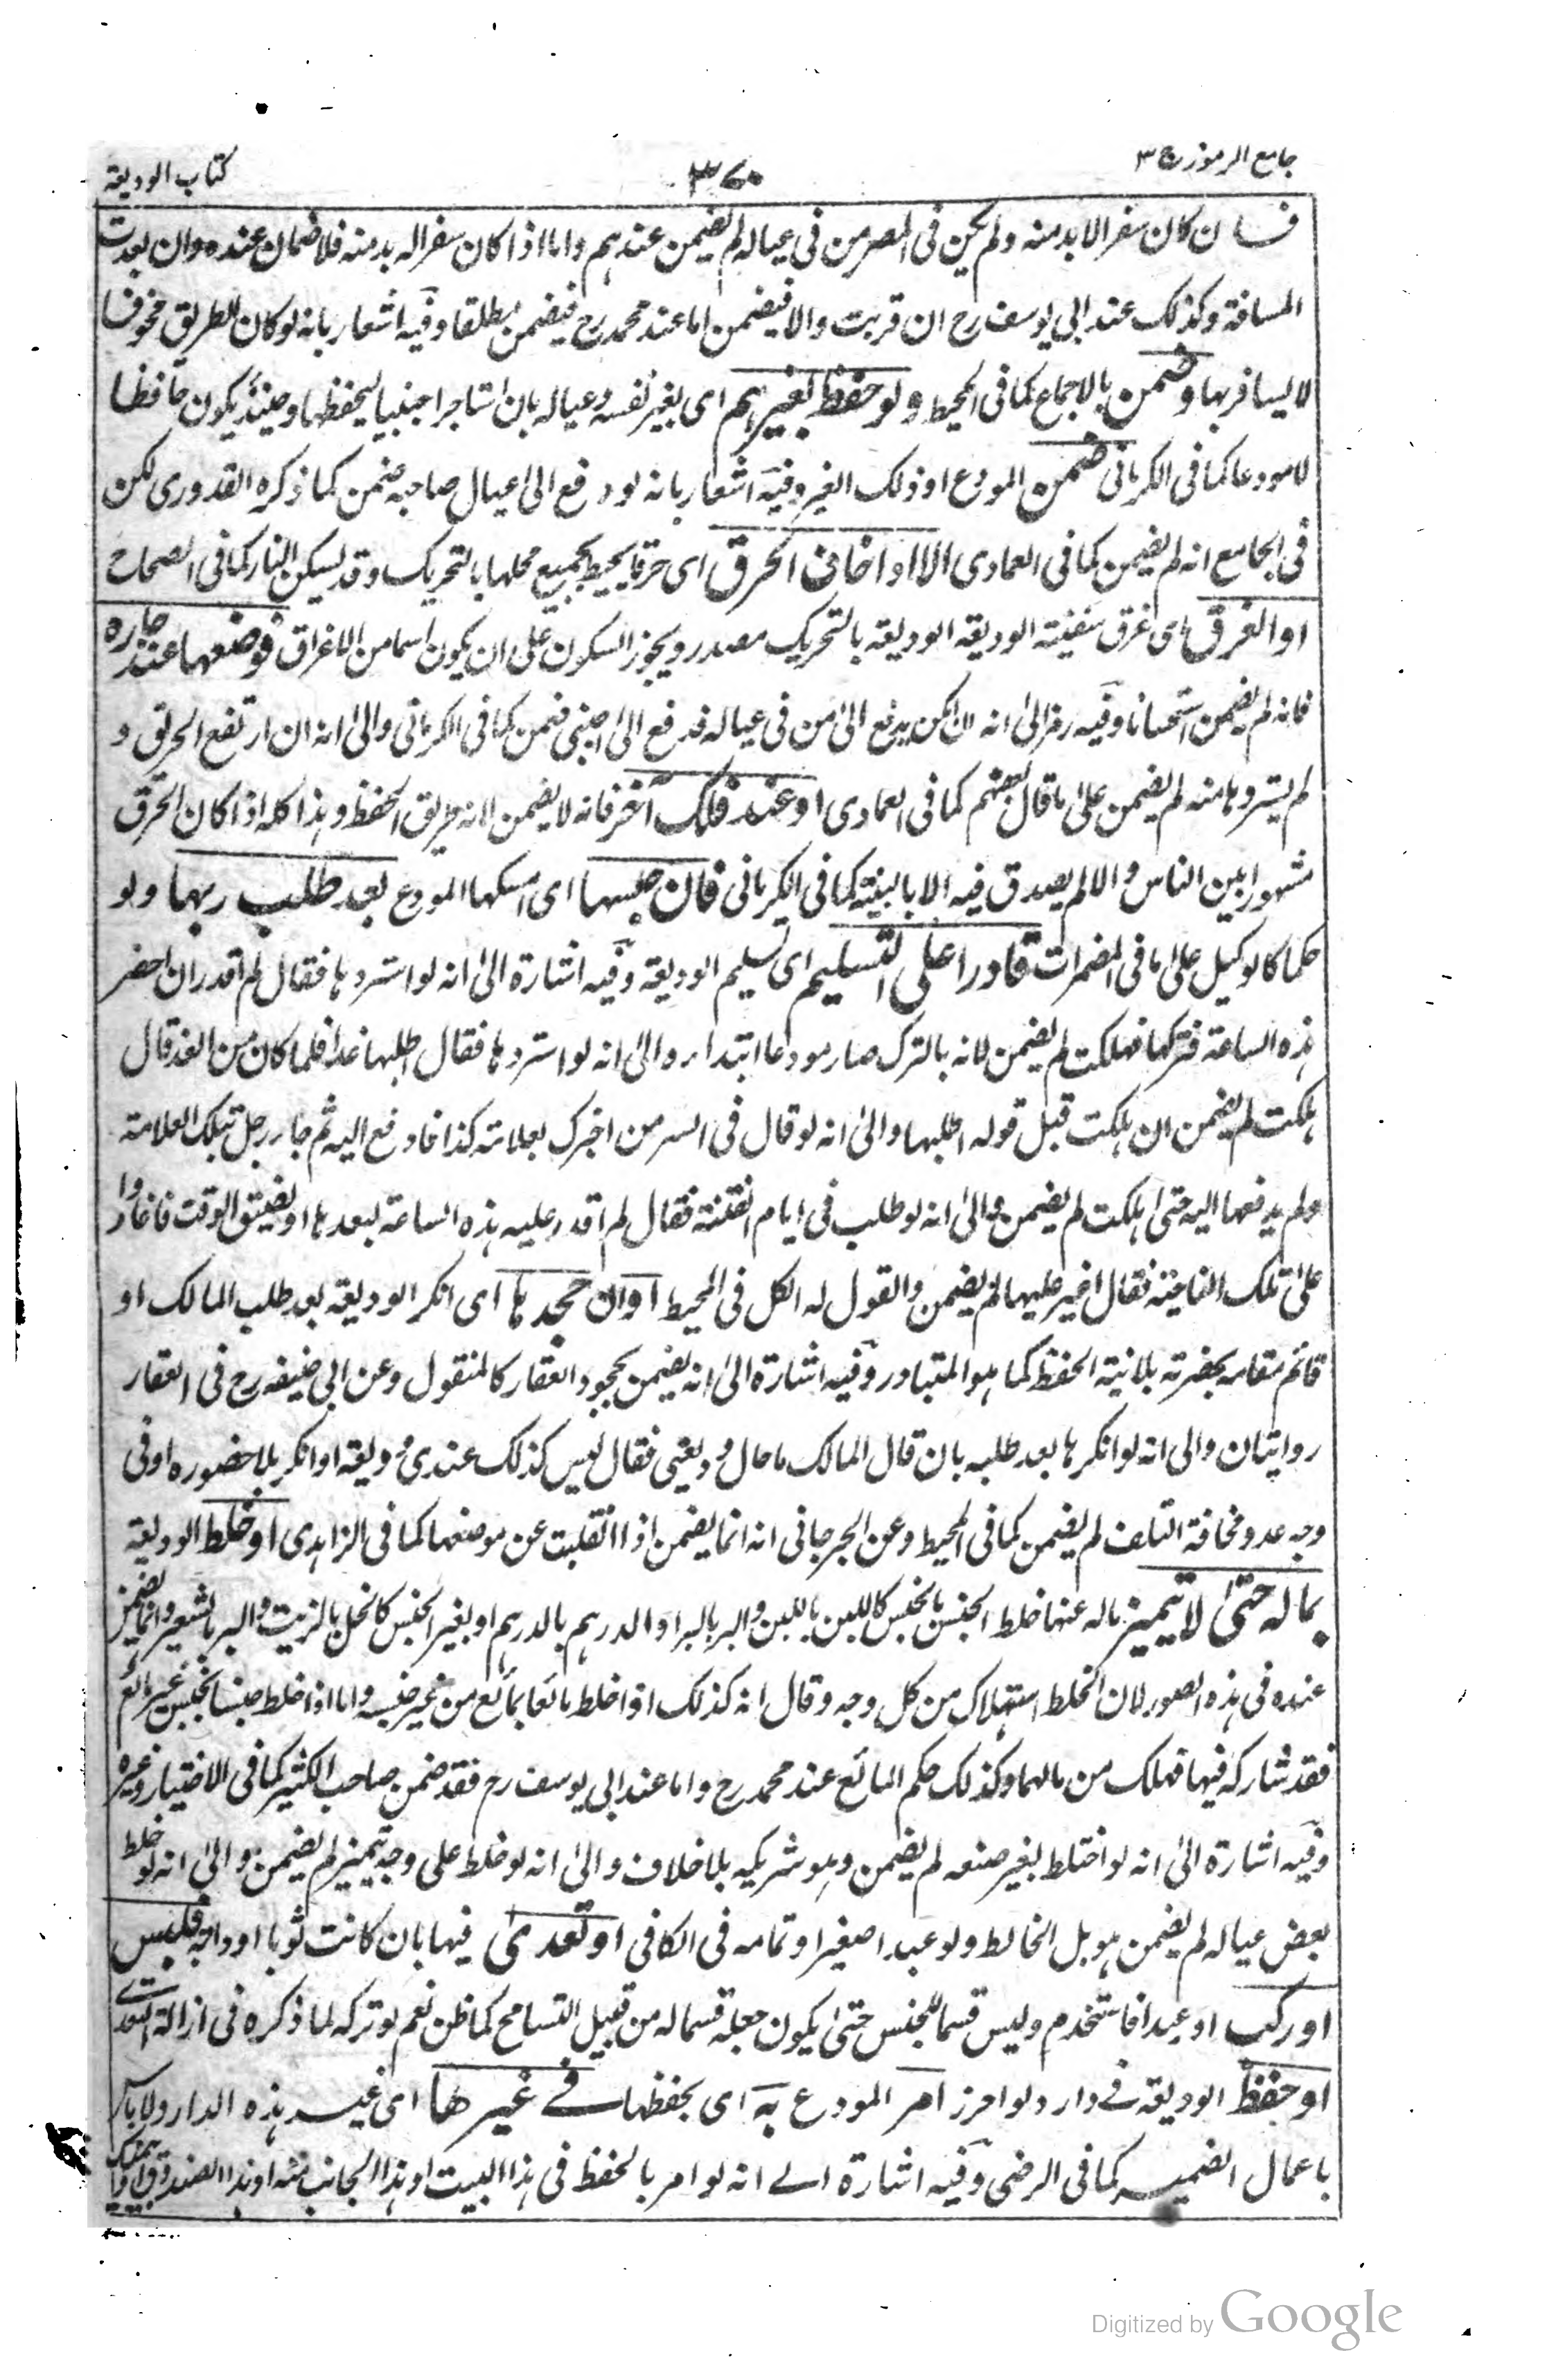 جامع الرموز ج ٣
٣٧٠
كتاب الوديعة
فان كان سفرا لا بد منه ولم يكن فى المصر من فى عياله لم يضمن عندهم واما اذا كان سفرا له بد منه فلا ضمان عنده وان بعدت
المسافة وكذلك عند ابى يوسف رح ان قربت والا فيضمن اما عند محمد رح فيضمن مطلقا وفيه اشعار بانه لو كان الطريق مخوفا
لا يسافر بها وضمن بالاجماع كما فى المحيط ولو حفظ بغيرهم اى بغير نفسه وعياله بان استاجر اجنبيا ليحفظها وحينئذ يكون حافظا
لا مودعا كما فى الكرمانى ضمن المودع او ذلك الغير وفيه اشعار بانه لو دفع الى عيال صاحبه ضمن كما ذكره القدورى لكن
فى الجامع انه لم يضمن كما فى العمادى الا اذا خاف الحرق اى حرقا يحيط بجميع محلها بالتحريك وقد يسكن النار كما فى الصحاح
او الغرق اى غرق سفينة الوديعة الوديعة بالتحريك مصدر ويجوز السكون على ان يكون اسما من الاغراق فوضعها عند جاره
فانه لم يضمن استحسانا وفيه رمز الى انه ان امكن يدفع الى من فى عياله فدفع الى اجنبى ضمن كما فى الكرمانى والى انه ان ارتفع الحريق و
لم يستردها منه لم يضمن على ما قال بعضهم كما فى العمادى او عند فلك آخر فانه لا يضمن لانه طريق الحفظ وهذا كله اذا كان الحرق
مشهورا بين الناس والا لم يصدق فيه الا بالبينة كما فى الكرمانى فان حبسها اى امسكها المودع بعد طلب ربها ولو
حكما كالوكيل على ما فى المضمرات قادرا على التسليم اى تسليم الوديعة وفيه اشارة الى انه لو استردها فقال لم اقدر ان احضر
هذه الساعة فتركها فهلكت لم يضمن لانه بالترك صار مودعا ابتداء والى انه لو استردها فقال اطلبها غدا فلما كان من الغد قال
هلكت لم يضمن ان هلكت قبل قوله اطلبها والى انه لو قال فى السر من اخبرك بعلامة كذا فادفع اليه ثم جاء رجل بتلك العلامة
ولم يدفعها اليه حتى هلكت لم يضمن والى انه لو طلب فى ايام الفتنة فقال لم اقدر عليه هذه الساعة لبعدها او لضيق الوقت فاغاروا
على تلك الناحية فقال اغير عليها لم يضمن والقول له الكل فى المحيط او ان جحدها اى انكر الوديعة بعد طلب المالك او
قائم مقامه بحضرته بلا نية الحفظ كما هو المتبادر وفيه اشارة الى انه يضمن بجحود العقار كالمنقول وعن ابى حنيفه رح فى العقار
روايتان والى انه لو انكرها بعد طلبه بان قال المالك ما حال وديعتى فقال ليس كذلك عندى وديعة او انكر بلا حضوره او فى
وجه عدو مخافة التلف لم يضمن كما فى المحيط وعن الجرجانى انه انما يضمن اذا انتقلت عن موضعها كما فى الزاهدى او خلط الوديعة
بماله حتى لا تتميز ماله عنها خلط الجنس بالجنس كاللبن باللبن والبر بالبر او الدرهم بالدرهم او بغير الجنس كالخل بالزيت والبر بالشعير وانما يضمن
عنده فى هذه الصور لان الخلط استهلاك من كل وجه وقال انه كذلك اذا خلط مائعا بمائع من غير جنسه واما اذا خلط جنسا بجنس غير مائع
فقد شاركه فيها فهلك من مالهما وكذلك حكم المائع عند محمد رح واما عند ابى يوسف رح فقد ضمن صاحب الكثير كما فى الاختيار وغيره
وفيه اشارة الى انه لو اختلط بغير صنعه لم يضمن وهو شريكه بلا خلاف والى انه لو خلط على وجه يتميز لم يضمن والى انه لو خلط
بعض عياله لم يضمن هو بل الخالط ولو عبدا صغيرا وتمامه فى الكافى او تعدى فيها بان كانت ثوبا او دابة فلبس
او ركب او عبدا فاستخدم وليس قسما للجنس حتى يكون جعله قسما له من قبيل التسامح كما ظن نعم لو تركه لما ذكره فى ازالة التعدى
او حفظ الوديعة فى دار ولو احرز امر المودع به اى بحفظها فى غيرها اى غير هذه الدار ولا باس
باعمال الضمير كما فى الرضى وفيه اشارة الى انه لو امر بالحفظ فى هذا البيت او هذا الجانب منه او هذا الصندوق
Digitized by Google